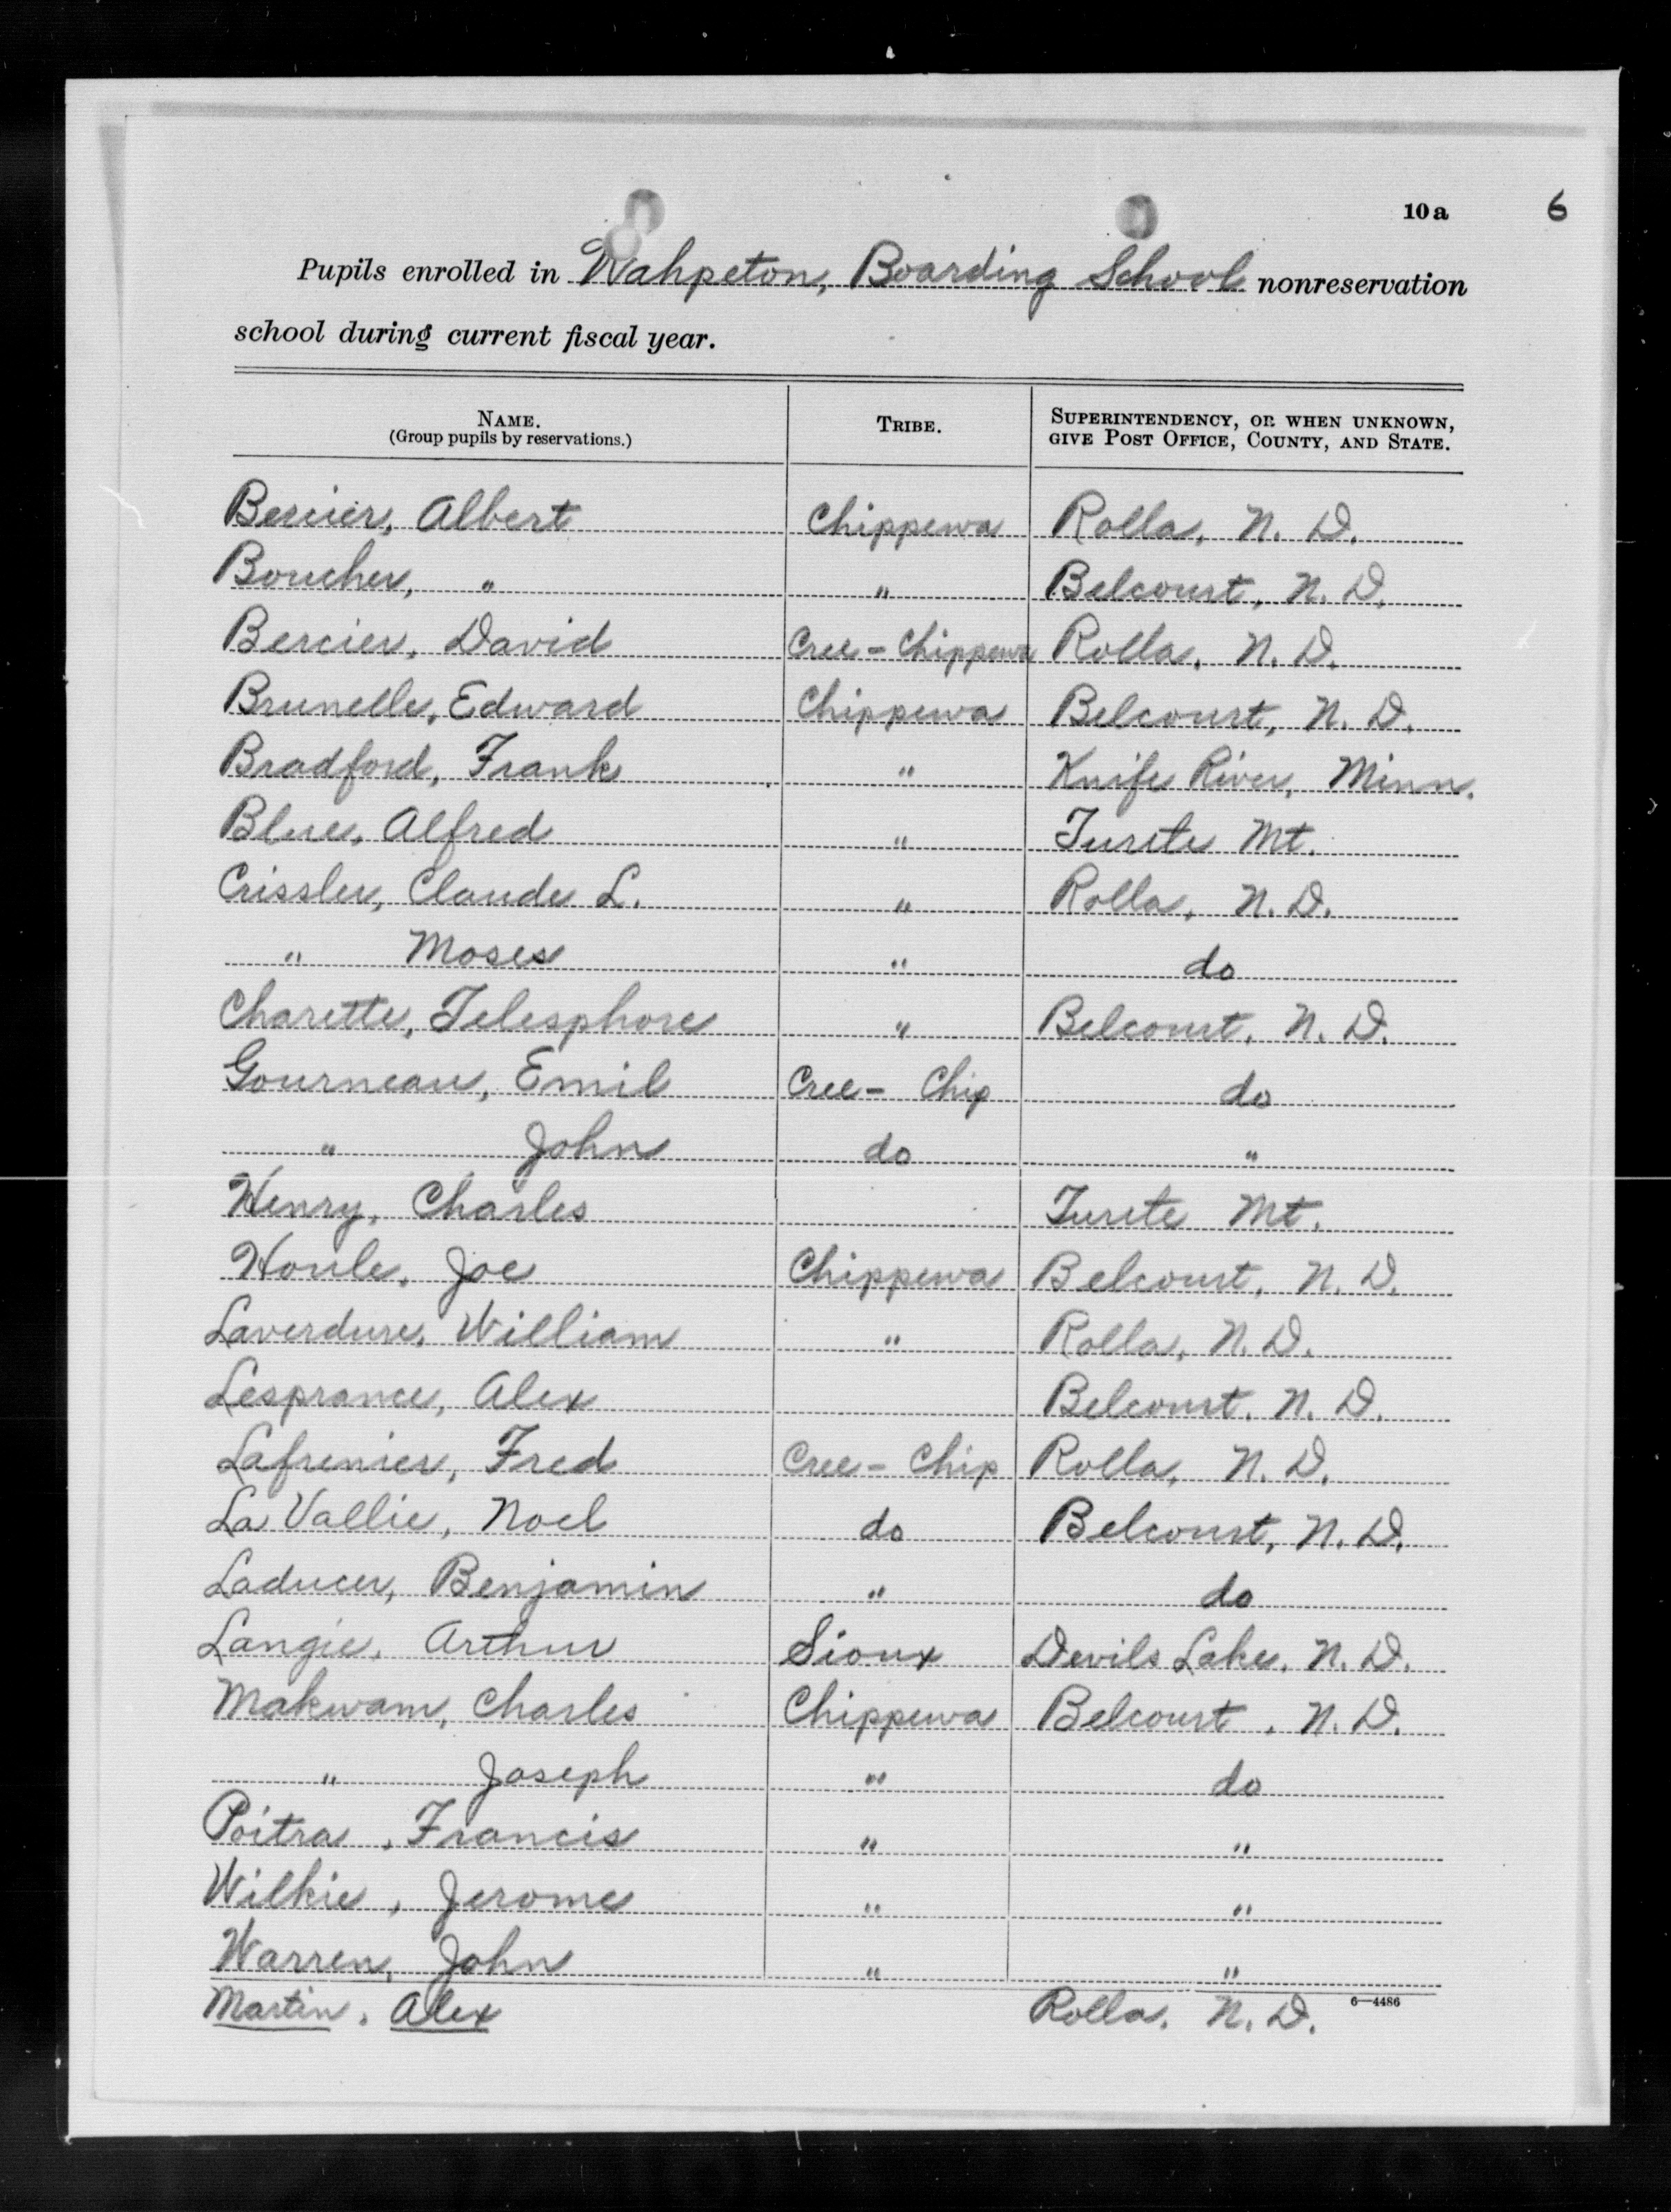 10a 6
Pupils enrolled in Wahpeton, Boarding School nonreservation
school during current fiscal year.
NAME. TRIBE. SUPERINTENDENCY, OR WHEN UNKNOWN,
(Group pupils by reservations.) GIVE POST OFFICE, COUNTY, AND STATE.
Bercier, Albert Chippewa Rolla, N. D.
Boucher, " " Belcourt, N. D.
Bercier, David Cree - Chippewa Rolla, N. D.
Brunelle, Edward Chippewa Belcourt, N. D.
Bradford, Frank " Knife River, Minn.
Blue, Alfred " Turtle Mt.
Crissler, Claude L. " Rolla, N. D.
" Moses " do
Charette, Telesphore " Belcourt, N. D.
Gourneau, Emil Cree - Chip do
" John do "
Henry, Charles Turtle Mt.
Houle, Joe Chippewa Belcourt, N. D.
Laverdure, William " Rolla, N. D.
Lesprance, Alex Belcourt, N. D.
Lafrenier, Fred Cree - Chip Rolla, N. D.
La Vallie, Noel do Belcourt, N. D.
Laducer, Benjamin " do
Langie, Arthur Sioux Devils Lake, N. D.
Makwam, Charles Chippewa Belcourt, N. D.
" Joseph " do
Poitra, Francis " "
Wilkie, Jerome " "
Warren, John " "
Martin, Alex Rolla, N. D. 6—4486